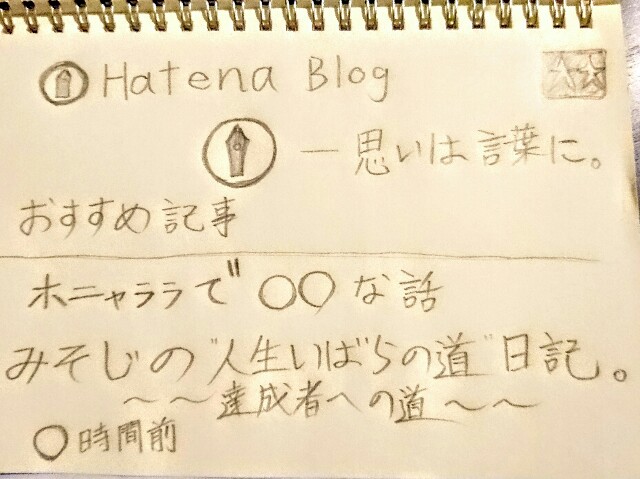 Hatena Blog
—思いは言葉に。
おすすめ記事
ホニャララで〇〇な話
みそじの"人生いばらの道"日記。
〜〜達成者への道〜〜
〇時間前